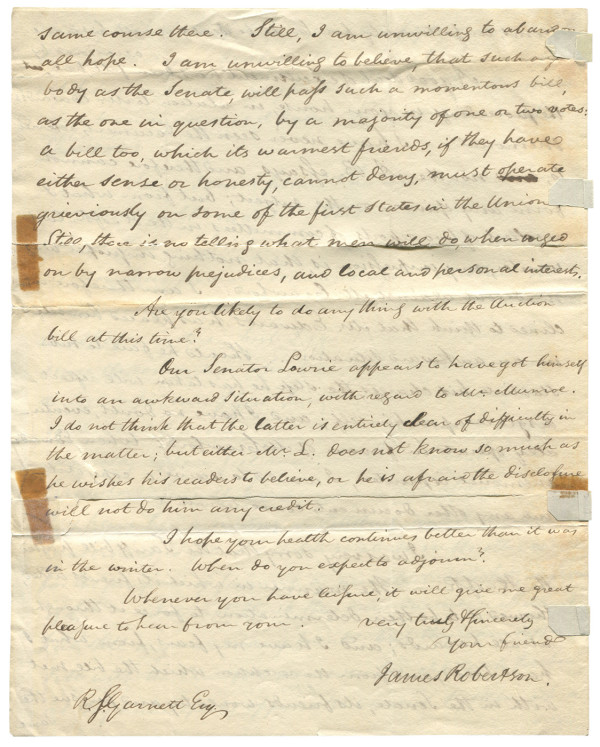 same course there. Still, I am unwilling to abandon
all hope. I am unwilling to believe, that such a
body as the Senate, will pass such a momentous bill,
as the one in question, by a majority of one or two votes:
a bill too, which its warmest friends, if they have
either sense or honesty, cannot deny, must operate
grieviously on some of the first States in the Union
Still, there is no telling what men will do, when urged
on by narrow prejudices, and local and personal interests.
Are you likely to do any thing with the Auction
bill at this time?
Our Senator Lowrie appears to have got himself
into an awkward situation, with regard to Mr. Munroe.
I do not think that the latter is entirely clear of difficulty in
the matter; but either Mr. L. does not know so much as
he wishes his readers to believe, or he is afraid the disclosure
will not do him any credit.
I hope your health continues better than it was
in the winter. When do you expect to adjourn?
Whenever you have leisure, it will give me great
pleasure to hear from you. Very truly & sincerely
Your friend
James Robertson.
R. S. Garnett Esq